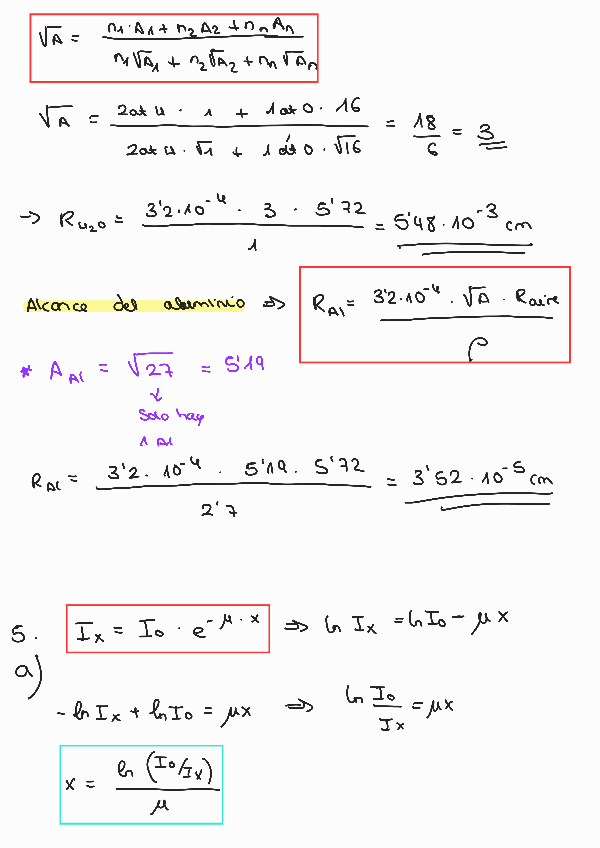 √A = (n₁·A₁ + n₂A₂ + nₙAₙ) / (n₁√A₁ + n₂√A₂ + nₙ√Aₙ)
√A = (2at H · 1 + 1at O · 16) / (2at H · √1 + 1át O · √16) = 18/6 = 3
→ R_H₂O = (3'2·10⁻⁴ · 3 · 5'72) / 1 = 5'48·10⁻³ cm
Alcance del aluminio ⇒ R_Al = (3'2·10⁻⁴ · √A · Raire) / ρ
* A_Al = √27 = 5'19
↓
Solo hay
1 Al
R_Al = (3'2 · 10⁻⁴ · 5'19 · 5'72) / 2'7 = 3'52 · 10⁻⁵ cm
5. Iₓ = I₀ · e^(-μ·x) ⇒ ln Iₓ = ln I₀ - μx
a)
- ln Iₓ + ln I₀ = μx ⇒ ln I₀/Iₓ = μx
x = ln (I₀/Iₓ) / μ